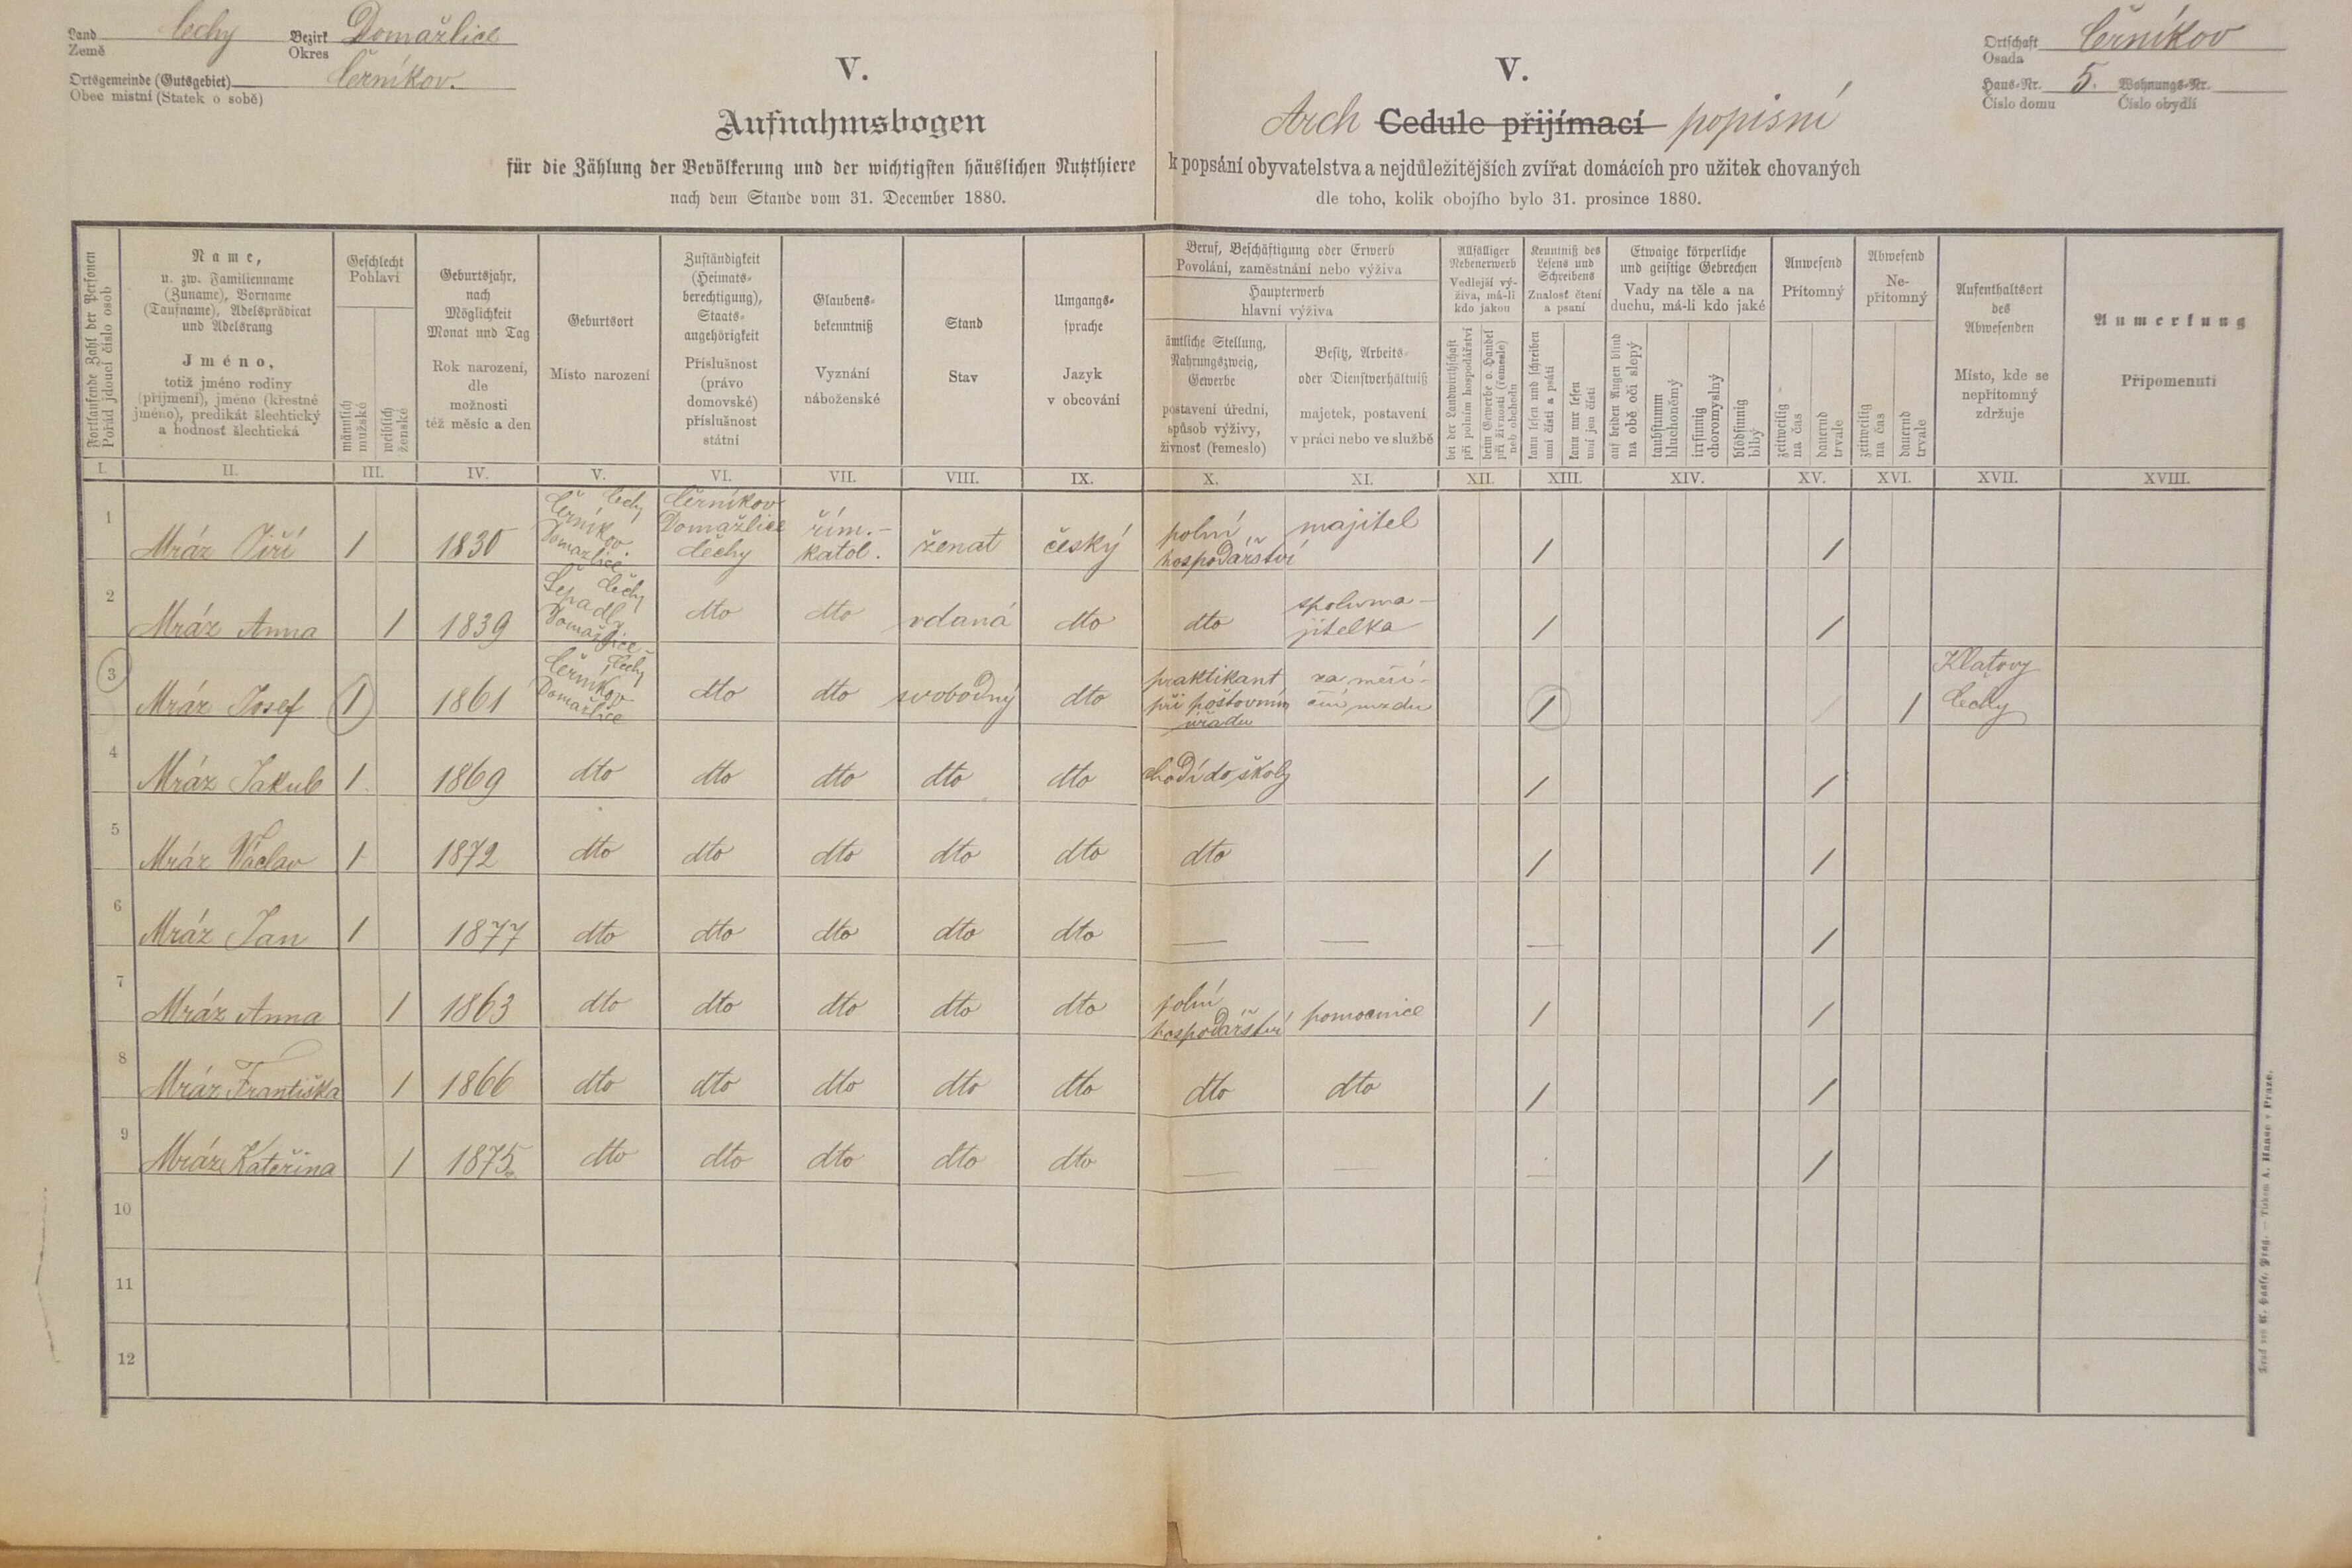 Land Čechy Bezirk Domažlice
Země Okres
Ortsgemeinde (Gutsgebiet) Černíkov.
Obec místní (Statek o sobě)
V.
Aufnahmsbogen
für die Zählung der Bevölkerung und der wichtigsten häuslichen Nutzthiere
nach dem Stande vom 31. December 1880.
V.
Arch Cedule přijímací popisní
k popsání obyvatelstva a nejdůležitějších zvířat domácích pro užitek chovaných
dle toho, kolik obojího bylo 31. prosince 1880.
Ortschaft Černíkov
Osada
Haus-Nr. 5. Wohnungs-Nr.
Číslo domu Číslo obydlí
Fortlaufende Zahl der Personen
Pořád jdoucí číslo osob
Name,
u. zw. Familienname
(Zuname), Vorname
(Taufname), Adelsprädicat
und Adelsrang
Jméno,
totiž jméno rodiny
(příjmení), jméno (křestné
jméno), predikát šlechtický
a hodnosť šlechtická
Geschlecht
Pohlaví
männlich
mužské
weiblich
ženské
Geburtsjahr,
nach
Möglichkeit
Monat und Tag
Rok narození,
dle
možnosti
též měsíc a den
Geburtsort
Místo narození
Zuständigkeit
(Heimats-
berechtigung),
Staats-
angehörigkeit
Příslušnost
(právo
domovské)
příslušnost
státní
Glaubens-
bekenntniß
Vyznání
náboženské
Stand
Stav
Umgangs-
sprache
Jazyk
v obcování
Beruf, Beschäftigung oder Erwerb
Povolání, zaměstnání nebo výživa
Haupterwerb
hlavní výživa
ämtliche Stellung,
Nahrungszweig,
Gewerbe
postavení úřední,
způsob výživy,
živnosť (řemeslo)
Besitz, Arbeits-
oder Dienstverhältniß
majetek, postavení
v práci nebo ve službě
Allfälliger
Nebenerwerb
Vedlejší vý-
živa, má-li
kdo jakou
bei der Landwirthschaft
při polním hospodářství
beim Gewerbe o. Handel
při živnosti (řemesle)
neb obchodu
Kenntniß des
Lesens und
Schreibens
Znalosť čtení
a psaní
kann lesen und schreiben
umí čísti a psáti
kann nur lesen
umí jen čísti
Etwaige körperliche
und geistige Gebrechen
Vady na těle a na
duchu, má-li kdo jaké
auf beiden Augen blind
na obě oči slepý
taubstumm
hluchoněmý
irrsinnig
choromyslný
blödsinnig
blbý
Anwesend
Přítomný
zeitweilig
na čas
dauernd
trvale
Abwesend
Ne-
přítomný
zeitweilig
na čas
dauernd
trvale
Aufenthaltsort
des
Abwesenden
Místo, kde se
nepřítomný
zdržuje
Anmerkung
Připomenutí
I. II. III. IV. V. VI. VII. VIII. IX. X. XI. XII. XIII. XIV. XV. XVI. XVII. XVIII.
1 Mráz Jiří 1 1830 Čechy Černíkov. Domažlice Černíkov Domažlice Čechy řím.- katol. ženat český polní hospodářství majitel / /
2 Mráz Anna 1 1839 Čechy Domažlice dto dto vdaná dto dto spoluma- jitelka / /
3 Mráz Josef 1 1861 Čechy Černíkov Domažlice dto dto svobodný dto praktikant při poštovním úřadu za měsí- ční mzdu / / Klatovy Čechy
4 Mráz Jakub 1 1869 dto dto dto dto dto chodí do školy / /
5 Mráz Václav 1 1872 dto dto dto dto dto dto / /
6 Mráz Jan 1 1877 dto dto dto dto dto — — — /
7 Mráz Anna 1 1863 dto dto dto dto dto polní hospodářství pomocnice / /
8 Mráz Františka 1 1866 dto dto dto dto dto dto dto / /
9 Mráz Kateřina 1 1875 dto dto dto dto dto — — — /
10
11
12
Druck von A. Haase, Prag. — Tiskem A. Haase v Praze.